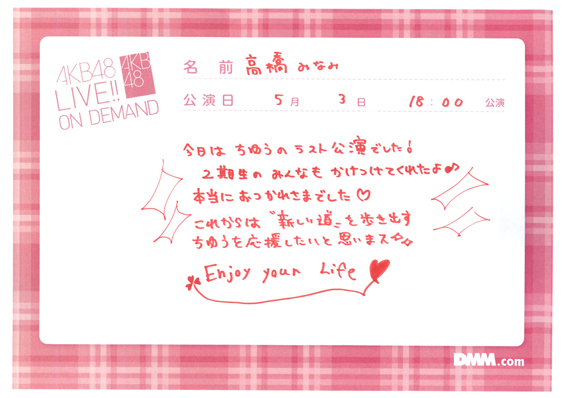 AKB48
LIVE!!
ON DEMAND
AKB
48
名 前 高橋みなみ
公演日 5月 3日 18:00 公演
今日は ちゆうの ラスト公演でした!
2期生の みんなも かけつけてくれたよ♪
本当に おつかれさまでした♡
これからは "新しい道"を歩き出す
ちゆうを応援したいと思いまス☆☆
Enjoy your Life
DMM.com